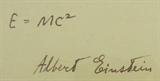 E = MC²
Albert Einstein